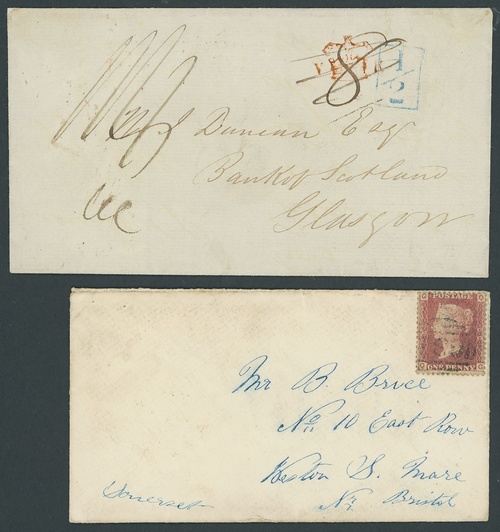 8
1/2
Duncan Esq
Bank of Scotland
Glasgow
POSTAGE
ONE PENNY
Mr B. Brice
No. 10 East Row
Weston S. Mare
Nr. Bristol
Somerset